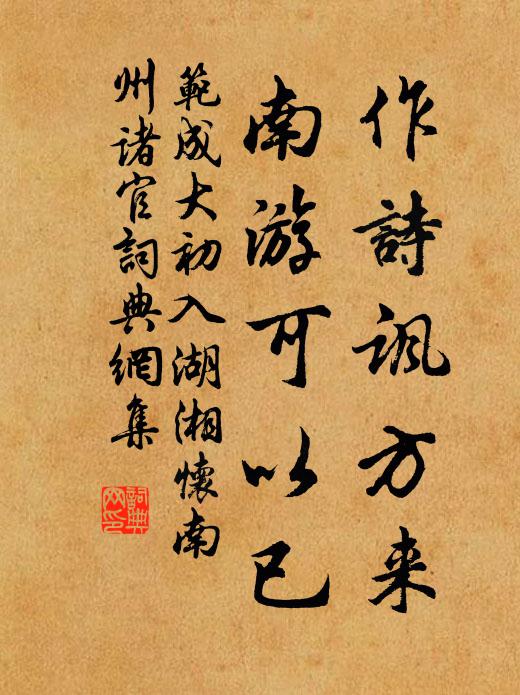 作詩諷方来
南游可以已
範成大初入湖湘懷南
州诸官詞典網集
詞典网印